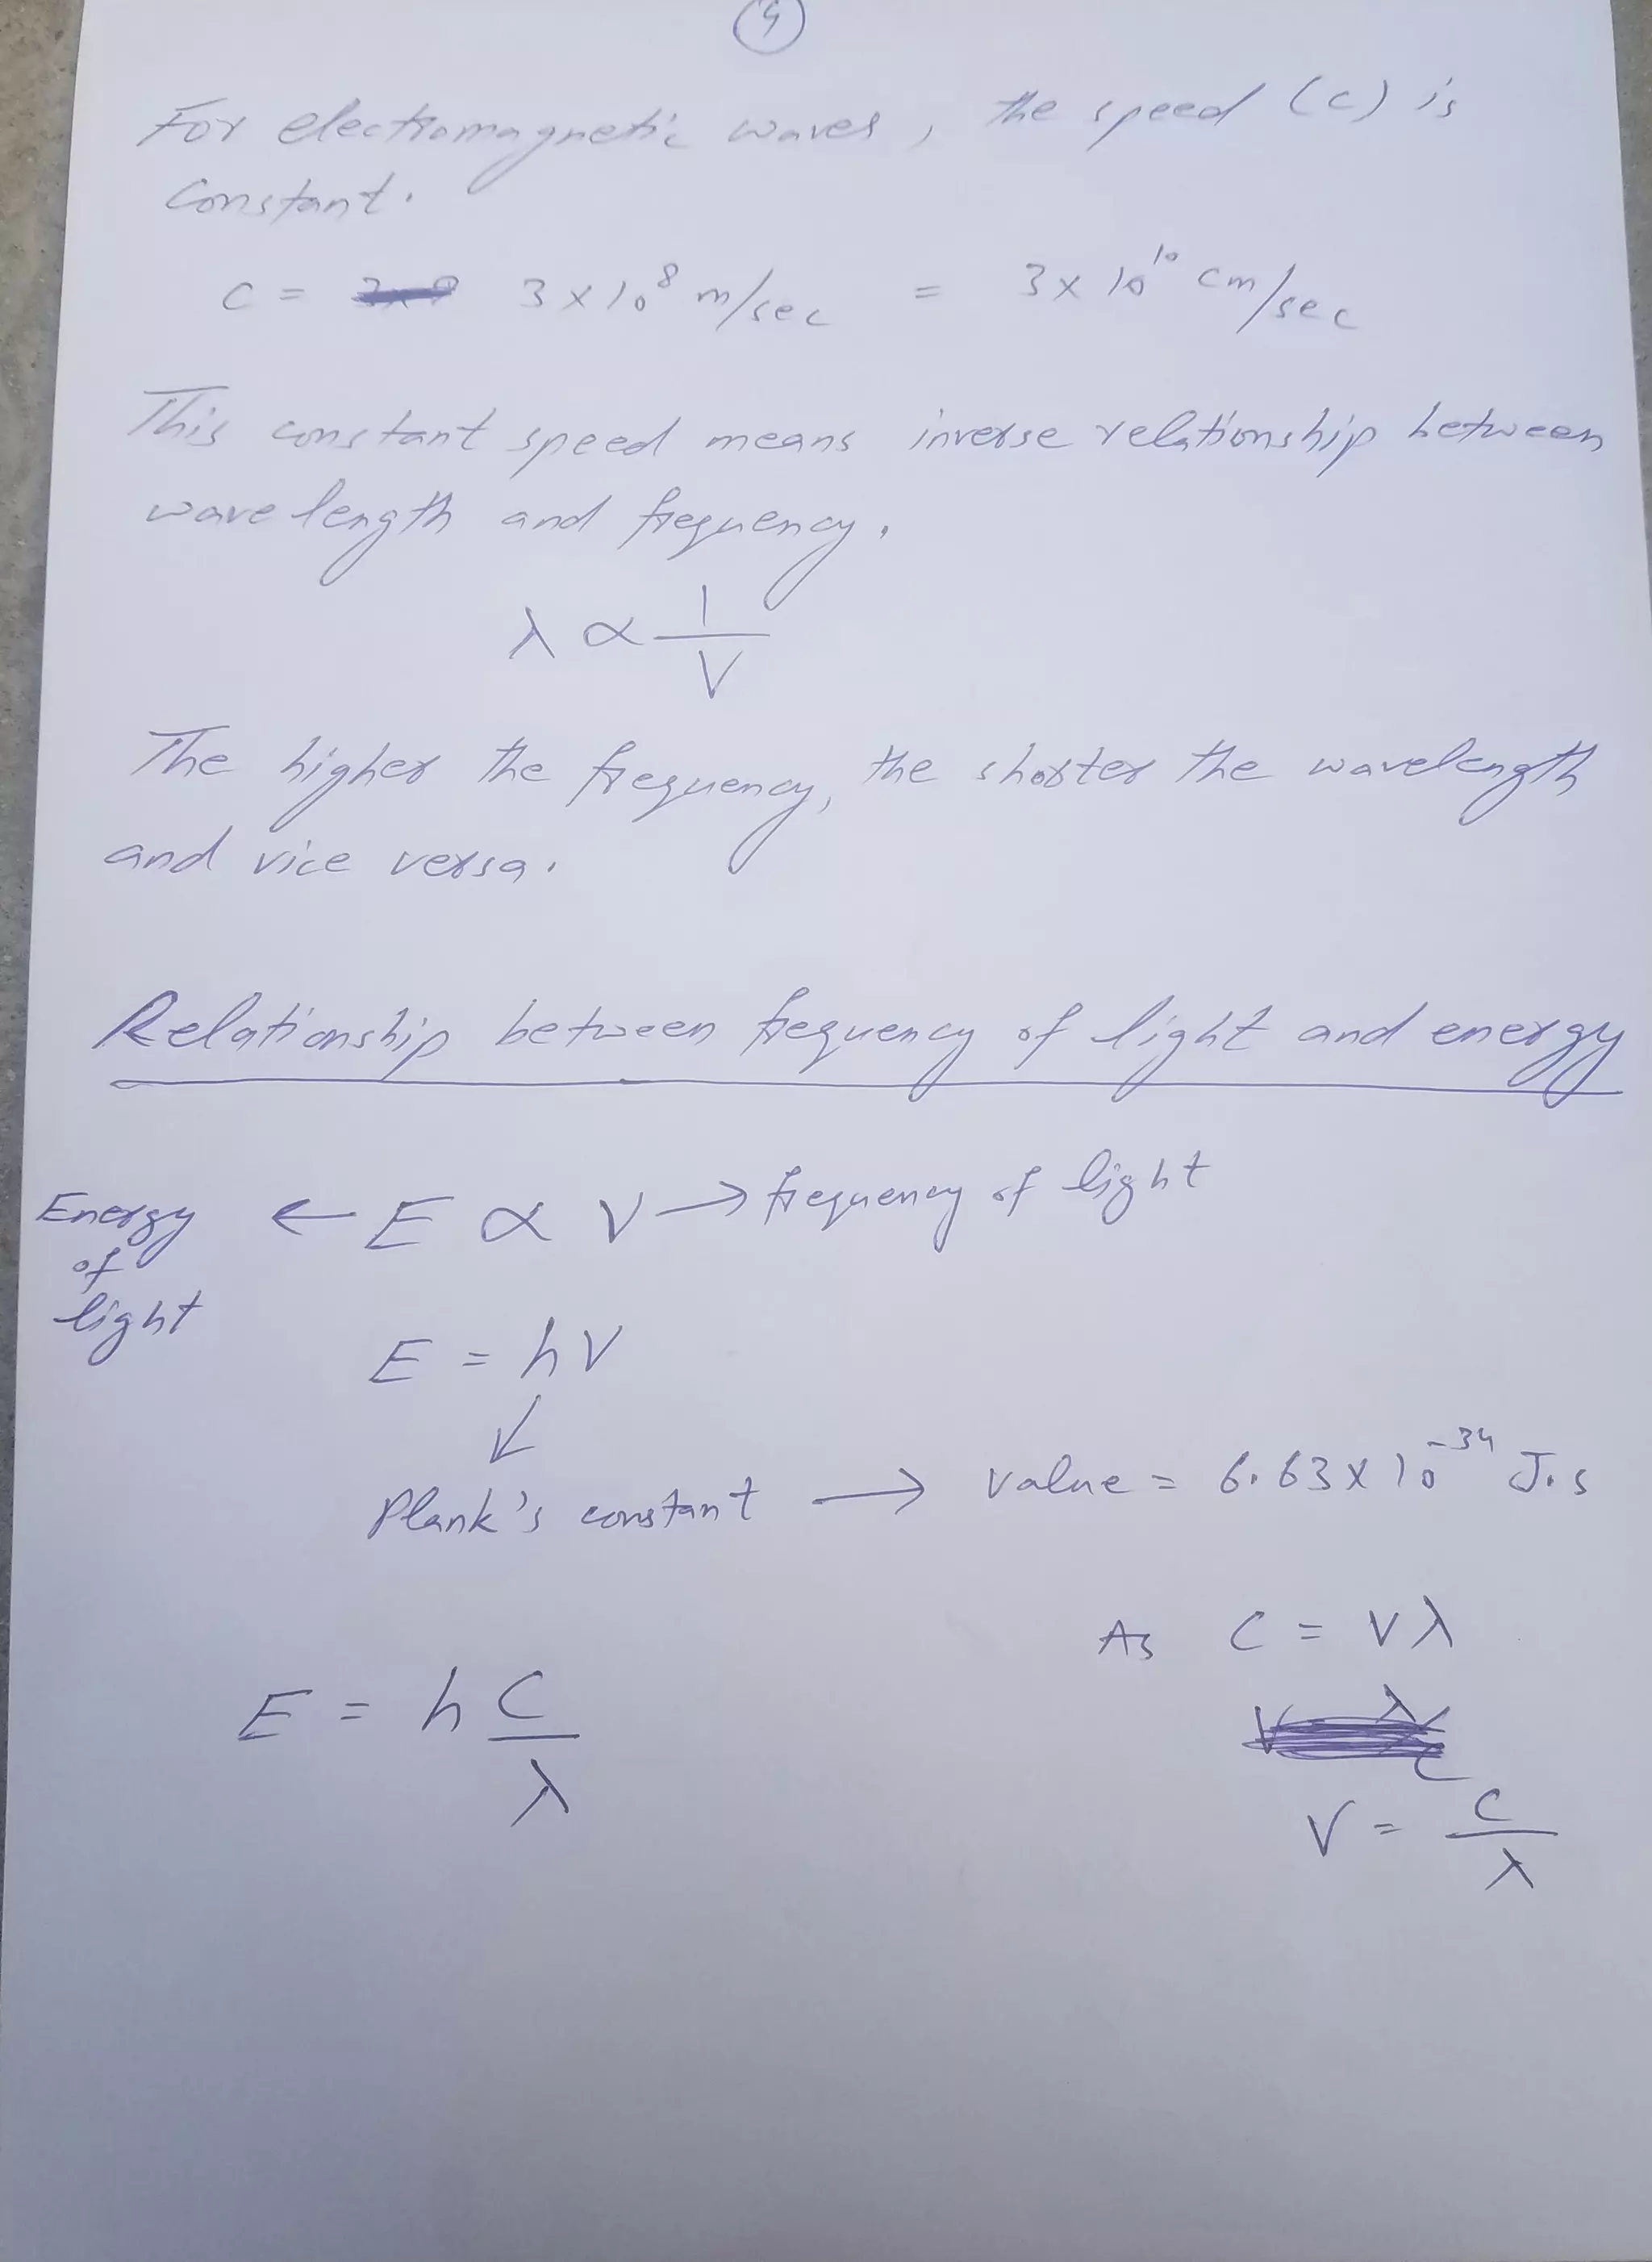 For electromagnetic waves, the speed (c) is
constant.
c = 3 x 10⁸ m/sec = 3 x 10¹⁰ cm/sec
This constant speed means inverse relationship between
wavelength and frequency.
λ ∝ 1/ν
The higher the frequency, the shorter the wavelength
and vice versa.
Relationship between frequency of light and energy
Energy of light ← E ∝ ν → frequency of light
E = hν
↓
Plank's constant → value = 6.63 x 10⁻³⁴ J.s
As C = νλ
E = h C/λ
ν = C/λ